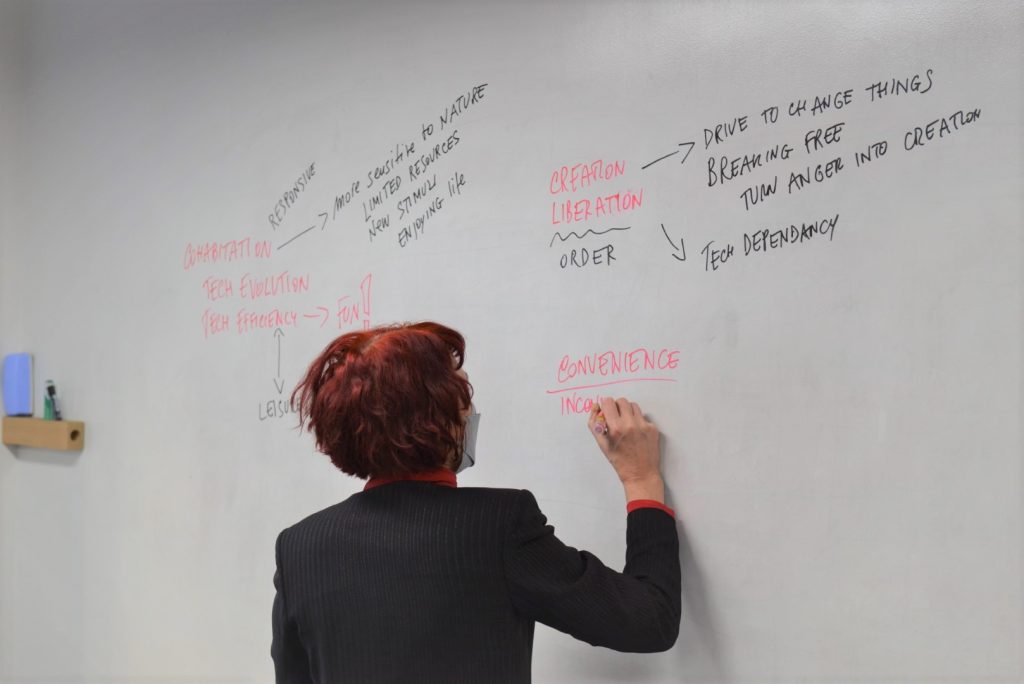 RESPONSIVE
COHABITATION
more sensitive to NATURE
LIMITED RESOURCES
New STIMULI
ENJOYING life
TECH EVOLUTION
TECH EFFICIENCY → FUN!
LEISURE
CREATION
LIBERATION
ORDER
DRIVE TO CHANGE THINGS
BREAKING FREE
TURN ANGER INTO CREATION
TECH DEPENDANCY
CONVENIENCE
INCON